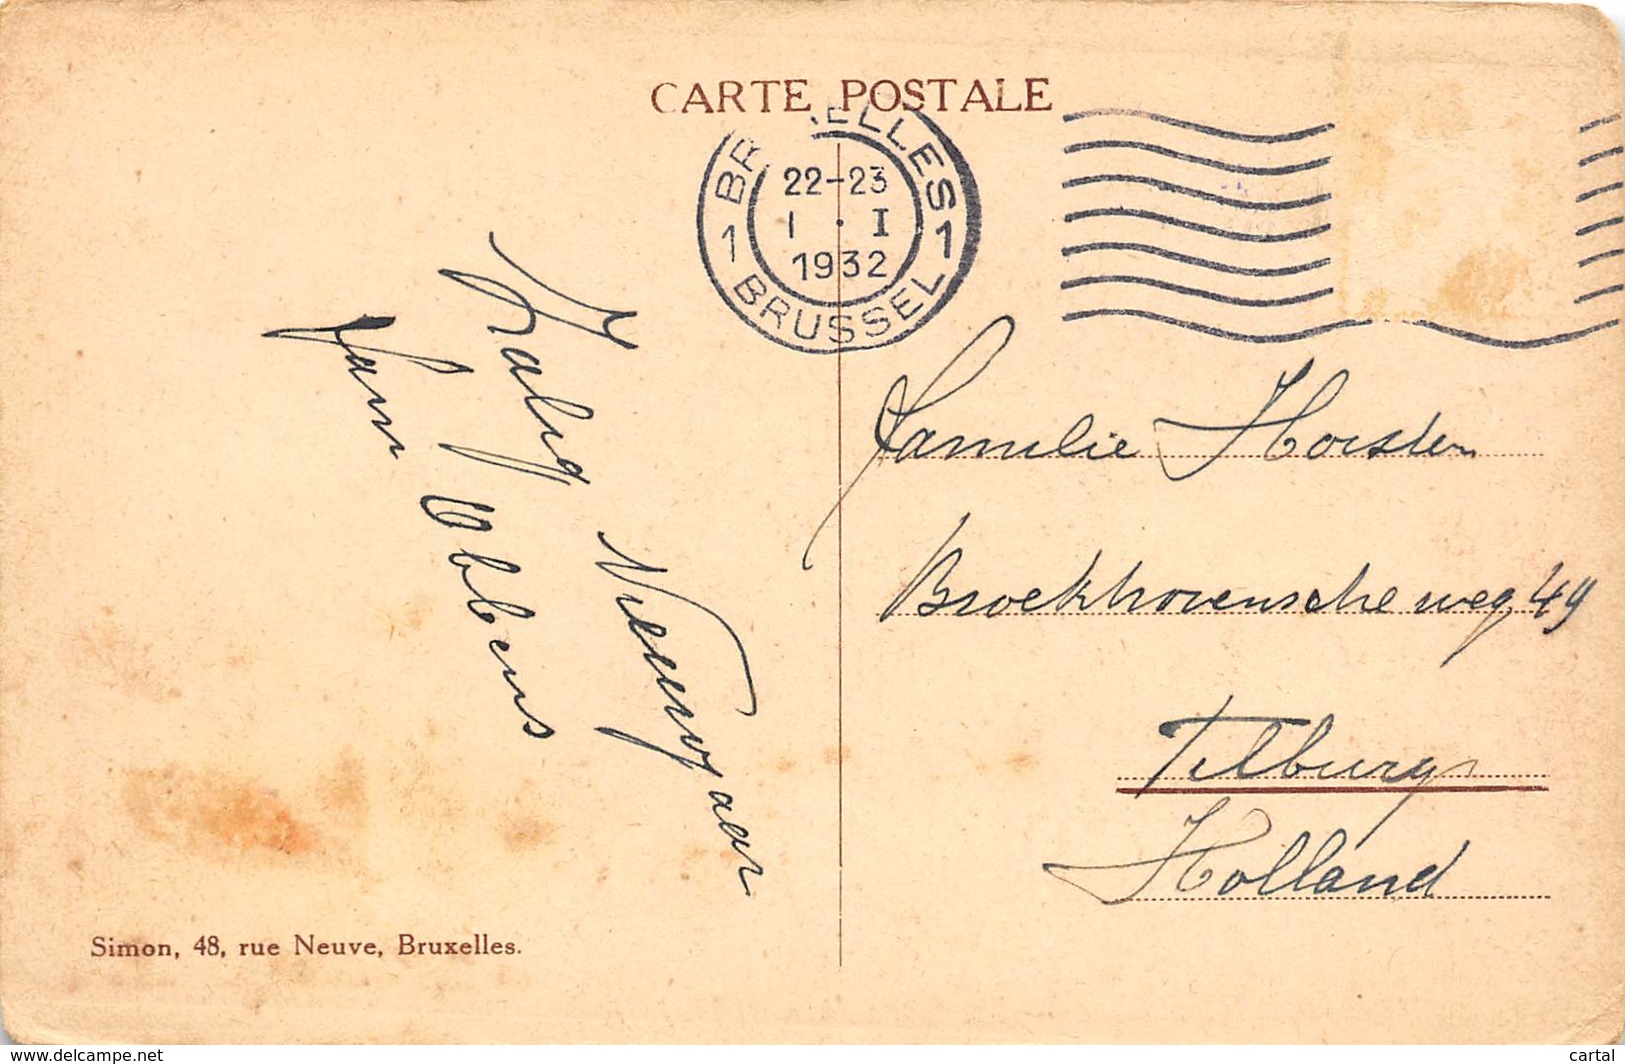 CARTE POSTALE
BRUXELLES
22-23
1 · I
1932
1 BRUSSEL 1
Zalig Nieuwjaar
fam Obbens
Familie Horsten
Broekhovensche weg 49
Tilburg
Holland
Simon, 48, rue Neuve, Bruxelles.
www.delcampe.net
cartal